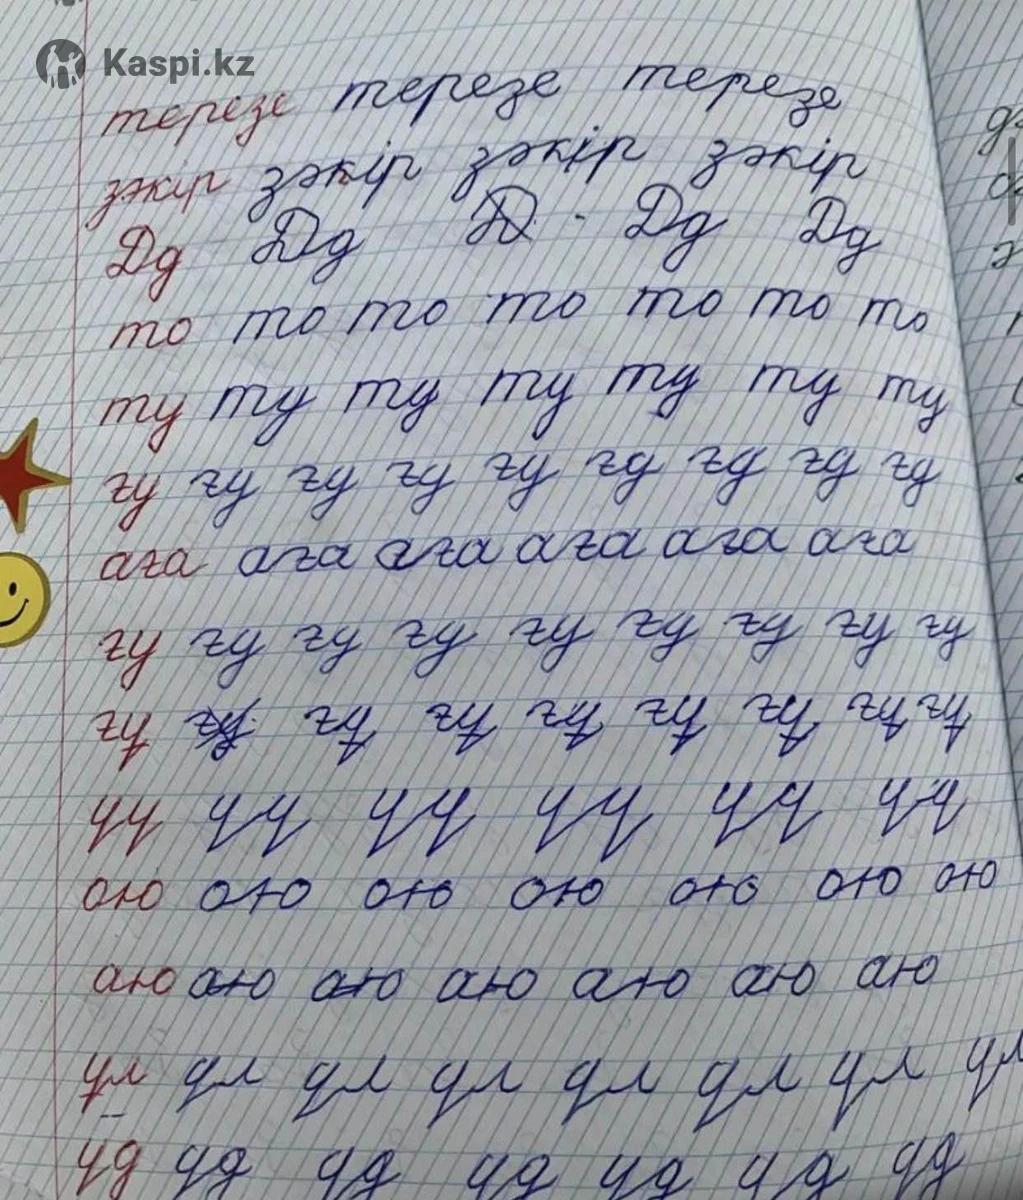 Kaspi.kz
терезе терезе терезе
зәкір зәкір зәкір зәкір
Дд Дд Д Дд Дд
то то то то то то то
ту ту ту ту ту ту ту
ғу ғу ғу ғу ғу ғд ғд ғд ғд
аға аға аға аға аға аға
ғу ғу ғу ғу ғу ғу ғу ғу ғу
ғұ ғұ ғұ ғұ ғұ ғұ ғұ ғұ
ұу ұұ ұұ ұұ ұұ ұұ
ою ою ою ою ою ою ою
аю аю аю аю аю аю аю
ұл ұл ұл ұл ұл ұл ұл ұл
ұд ұд ұд ұд ұд ұд ұд